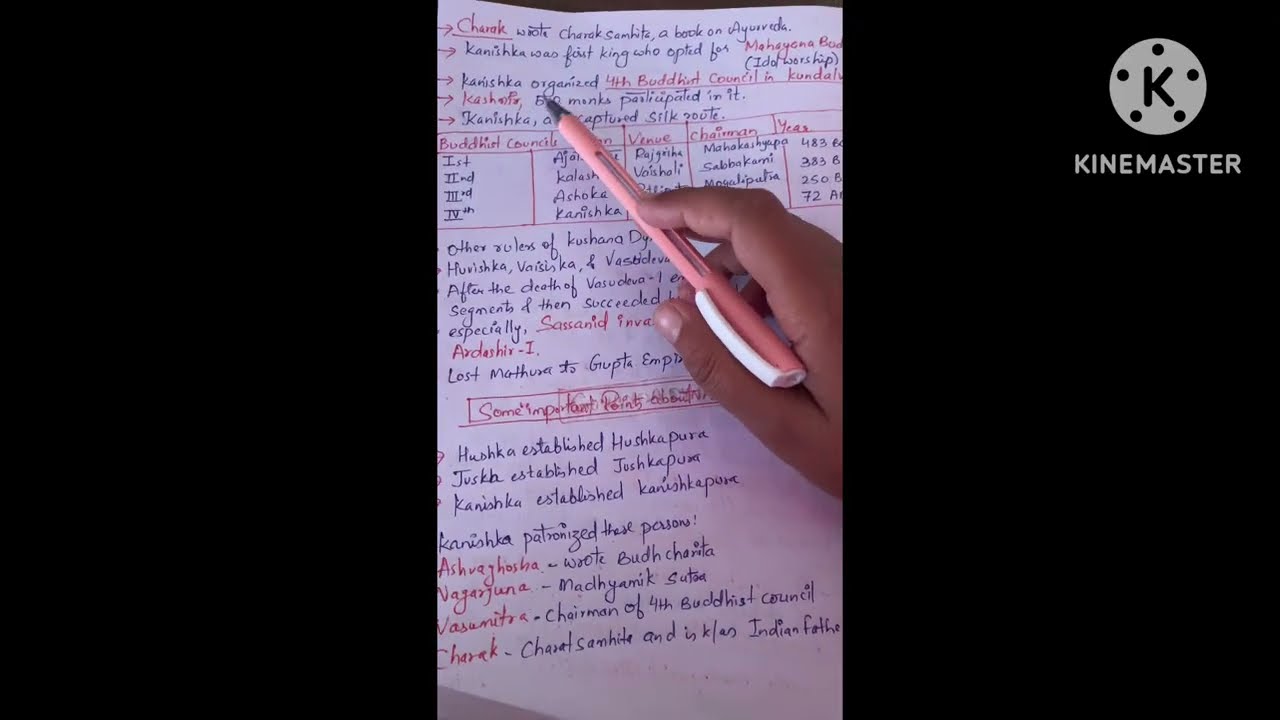 → Charak wrote Charak samhita, a book on Ayurveda.
→ Kanishka was first king who opted for Mahayana Bud
(Idol worship)
→ Kanishka organized 4th Buddhist Council in Kundalv
→ Kashmir, monks participated in it.
→ Kanishka, captured silk route.
Buddhist Councils Venue Chairman Year
Ist Rajgriha Mahakashyapa 483 B
IInd Kalash Vaishali Sabbakami 383 B
IIIrd Ashoka Mogaliputra 250 B
IVth Kanishka 72 A
Other rulers of Kushana Dy
Huvishka, Vaisiska, & Vasudeva
After the death of Vasudeva-1
segments & then succeeded
especially, Sassanid inva
Ardashir-I.
Lost Mathura to Gupta Empir
Some important Points about
→ Hushka established Hushkapura
Juska established Jushkapura
Kanishka established Kanishkapura
Kanishka patronized these persons!
Ashvaghosha - wrote Budhcharita
Nagarjuna - Madhyamik Sutra
Vasumitra - Chairman of 4th Buddhist council
Charak - Charat samhita and is k/as Indian fathe
K
KINEMASTER